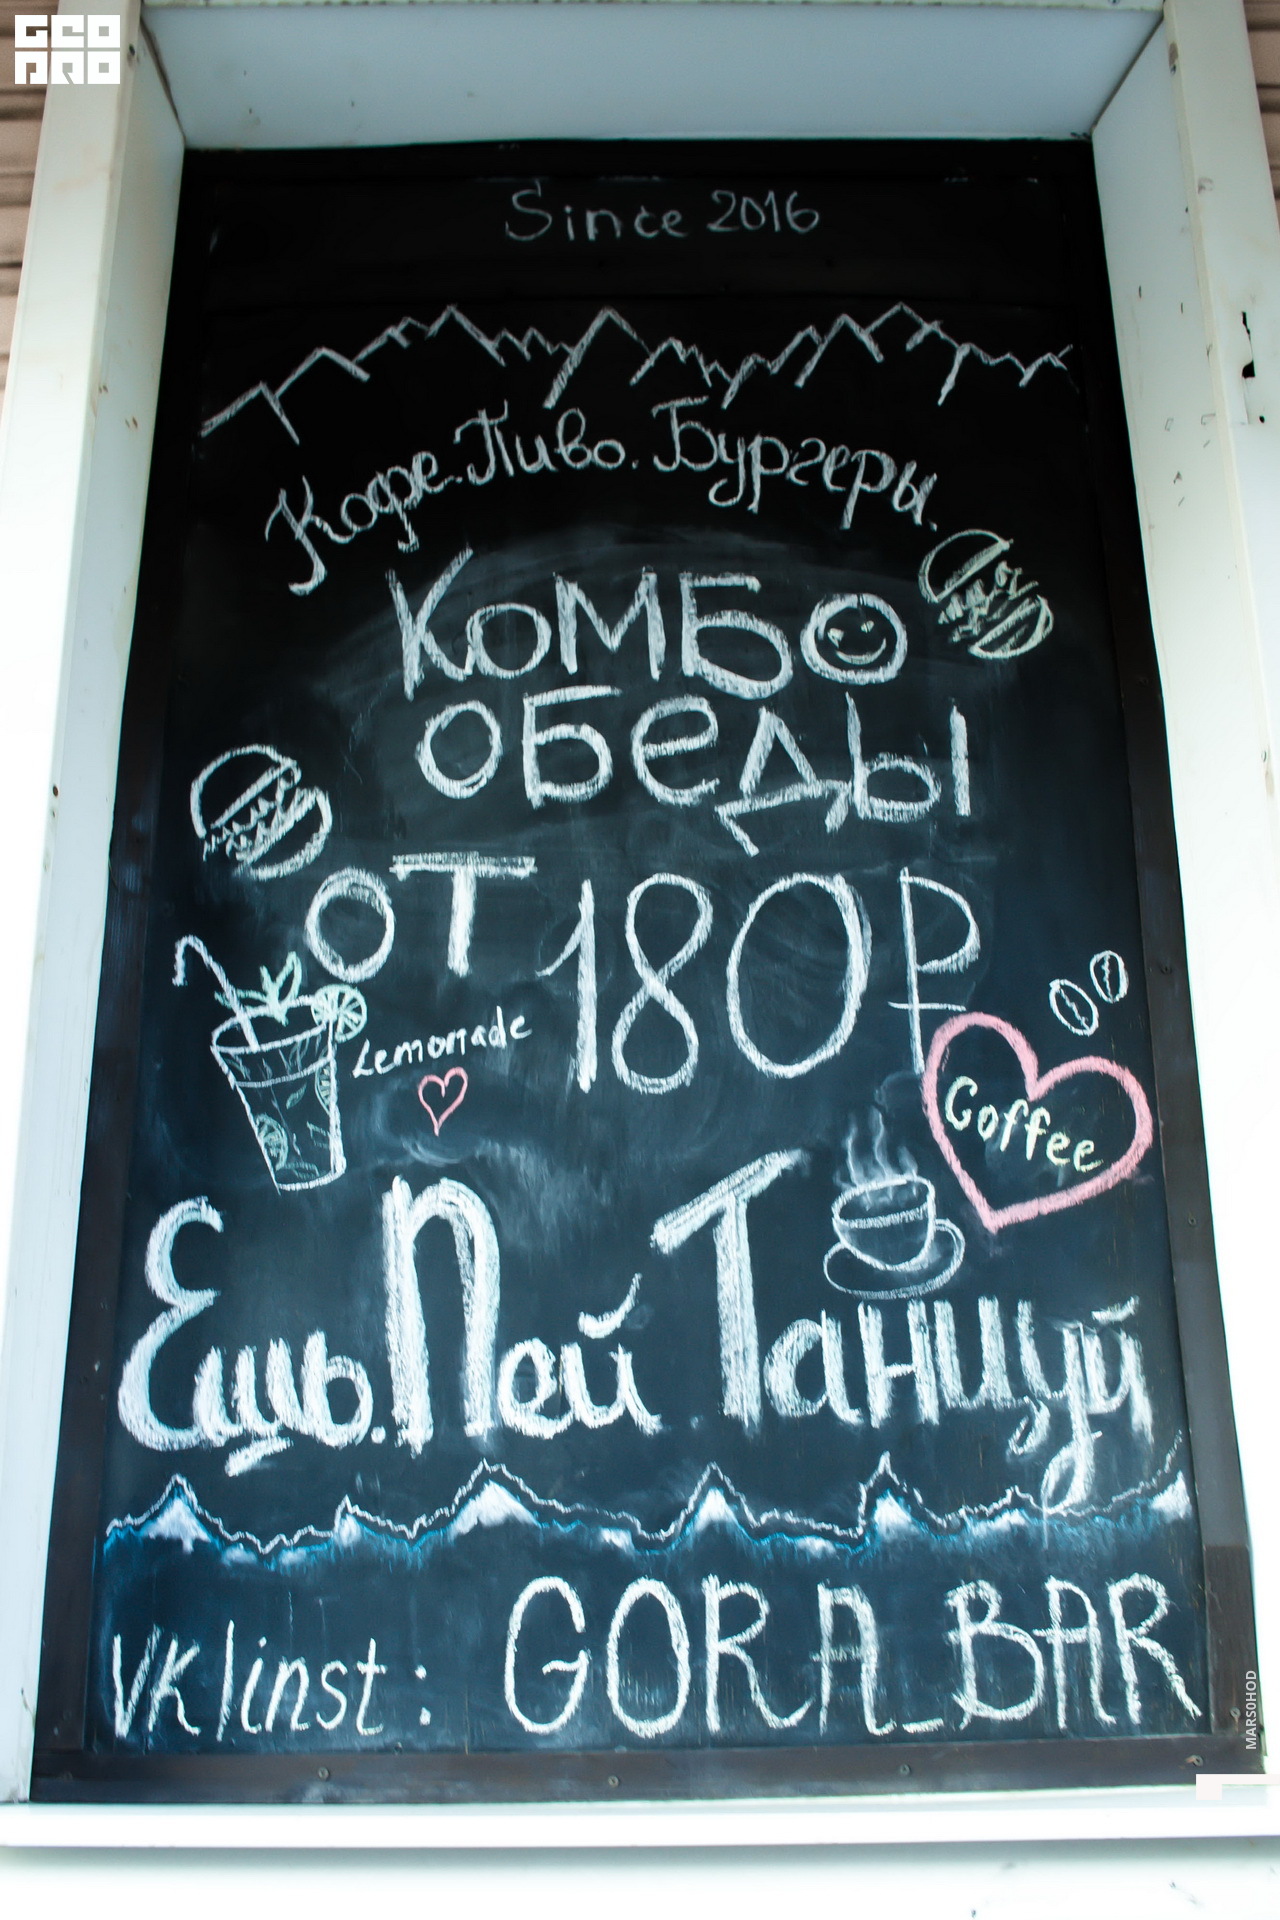 GEO
PRO
Since 2016
Кофе. Пиво. Бургеры.
КОМБО
ОБЕДЫ
ОТ 180₽
Lemonade
Coffee
Ешь. Пей. Танцуй
VK/inst: GORA_BAR
MARS0HOD